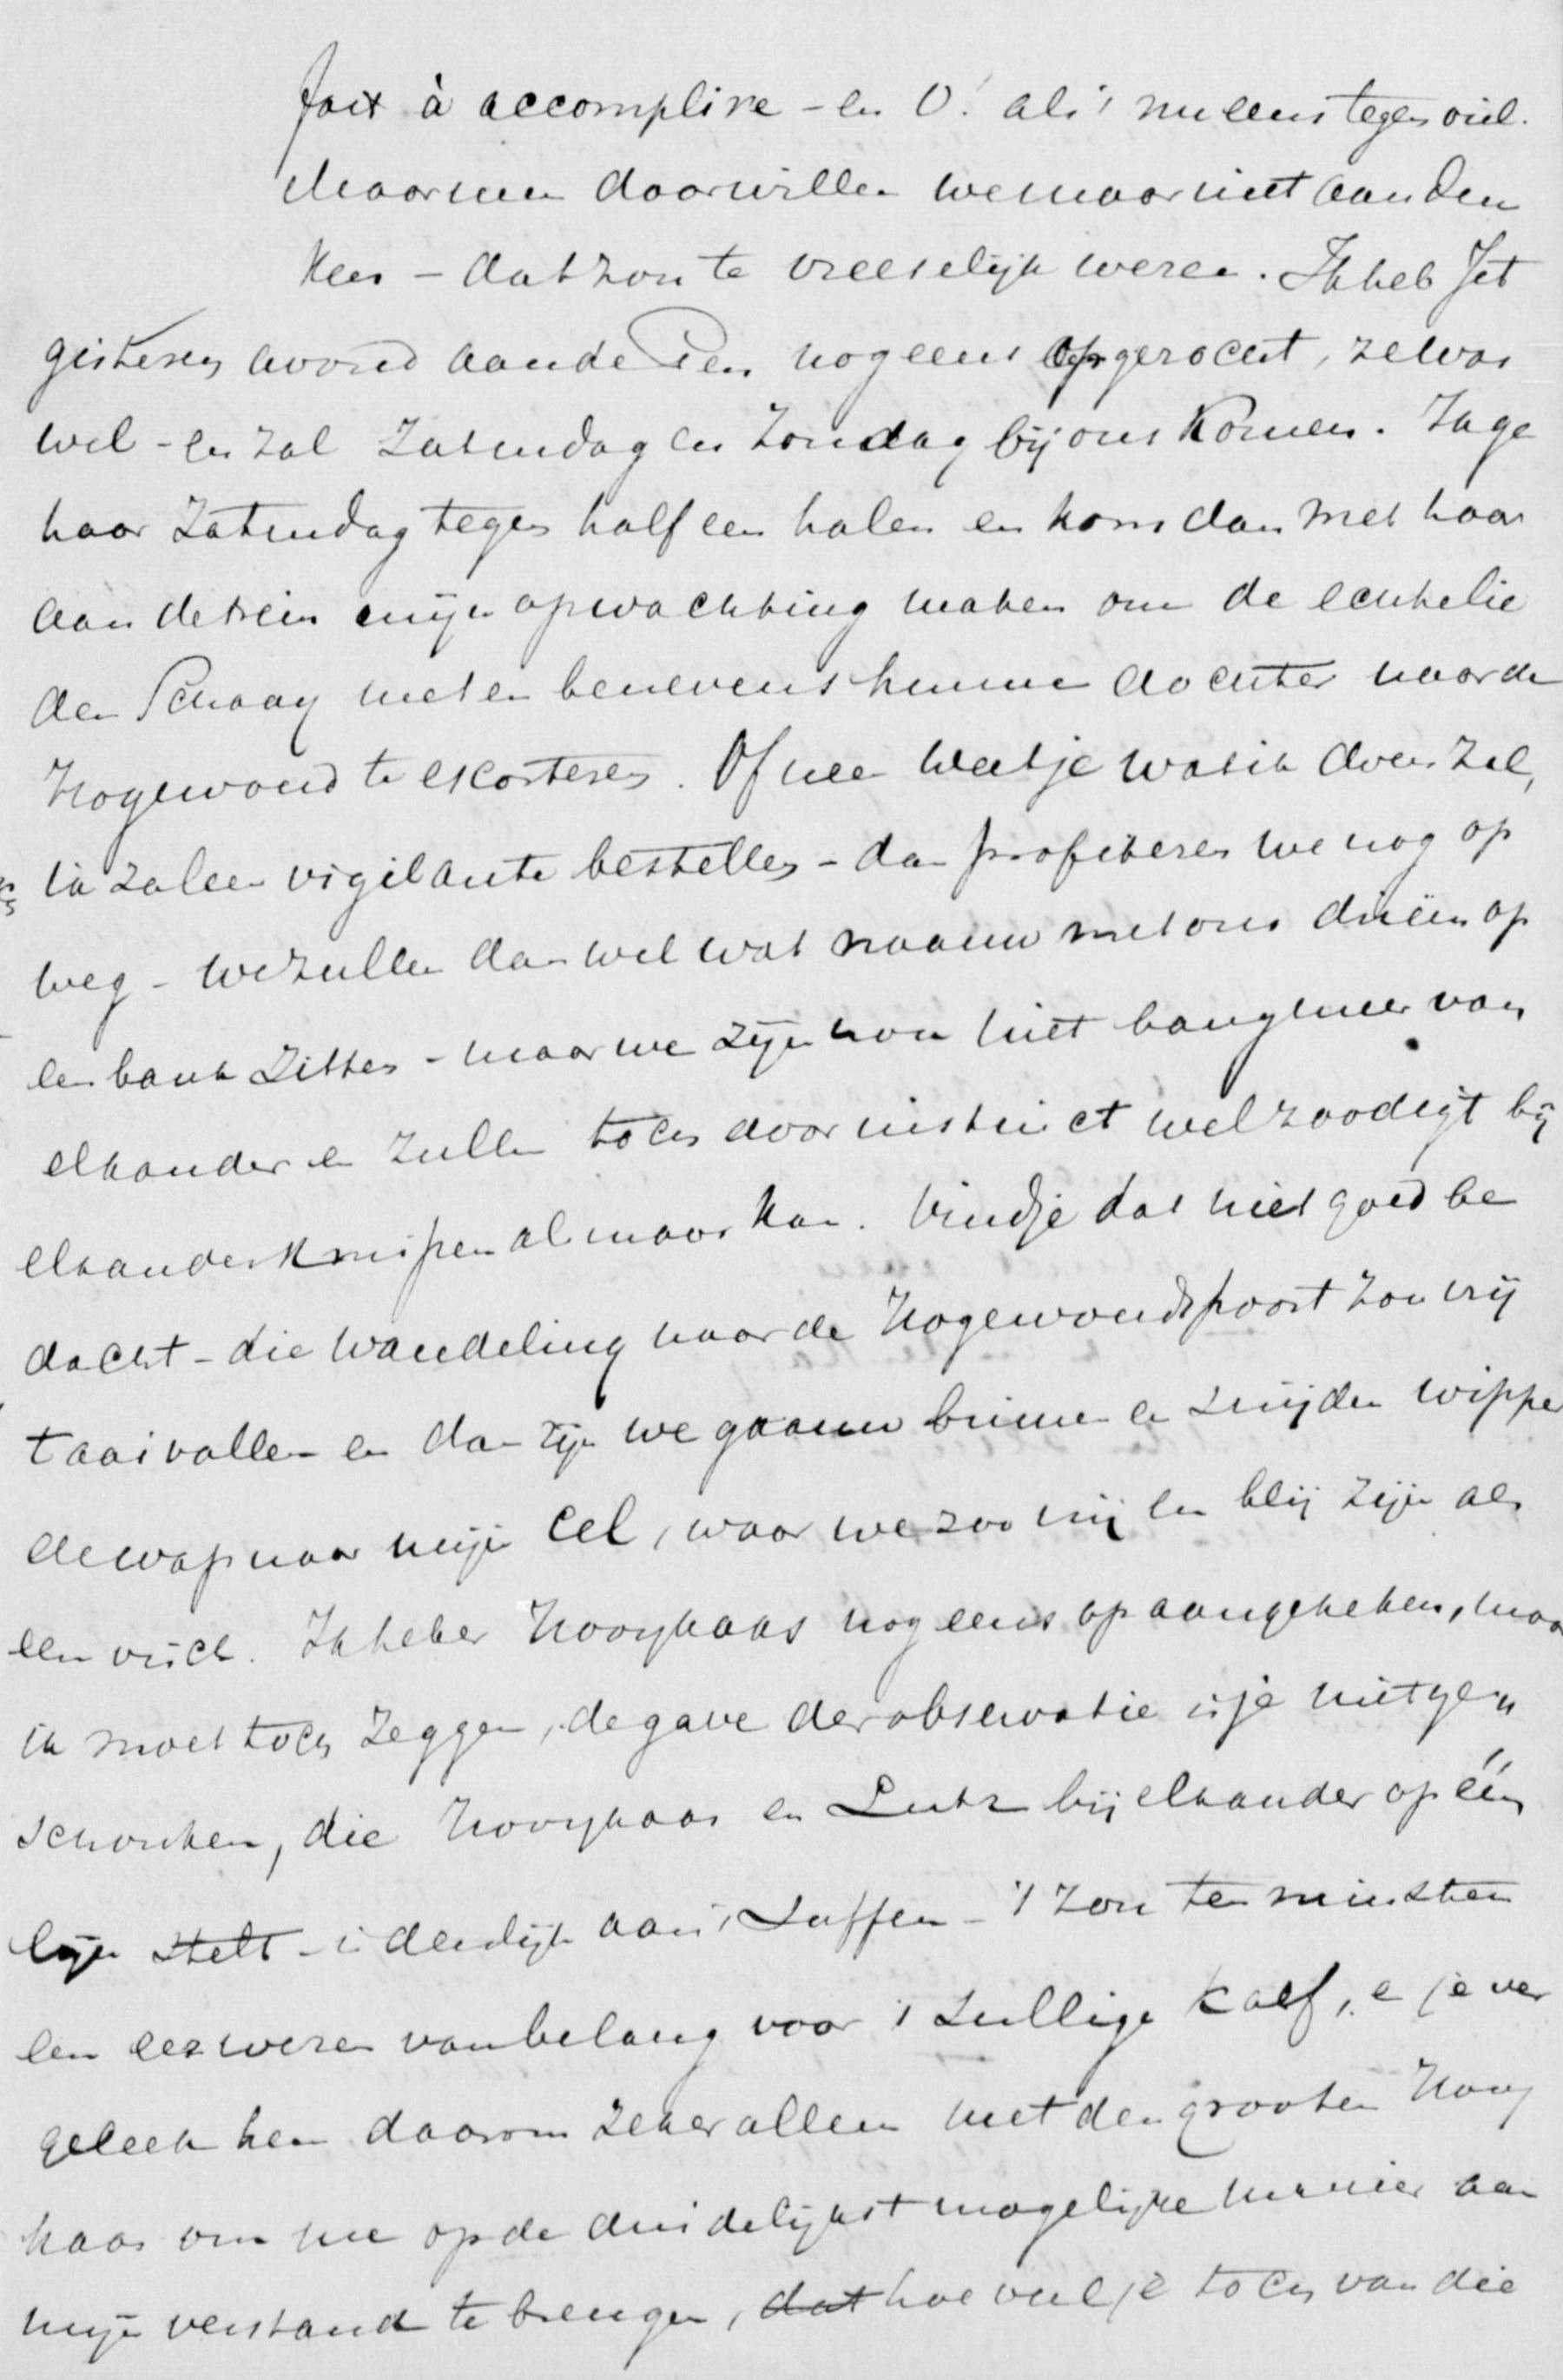 fait à accomplire - en O! als 't nu eens tegenviel.
Maar nee daar willen we maar niet aan den
ken - dat zou te vreeselijk wezen. Ik heb Jet
gisteren avond aan de Pen nog eens opgezocht, ze was
wel - en zal Zaterdag en Zondag bij ons komen. Ik ga
haar Zaterdag tegen half een halen en kom dan met haar
aan de trein mijn opwachting maken om de echtelie
den Schaay met en benevens hunne dochter naar de
Hogewoerd te escorteren. Of nee weet je wat ik doen zal,
ik zal een vigilante bestellen - dan profiteren we nog op
weg - we zullen dan wel wat naauw met ons drieën op
een bank zitten - maar we zijn nou niet bang meer van
elkander en zullen toch door instinct wel zoo digt bij
elkander kruipen als maar kan. Vind je dat niet goed be
dacht - die wandeling naar de Hogewoerdspoort zou vrij
taai vallen en dan zijn we gaauw binnen en wippe
de wap naar mijn cel, waar we zoo vrij en blij zijn als
een visch. Ik heb er Hooykaas nog eens op aangekeken, maa
ik moet toch zeggen, de gave der observatie is je niet ge„
schonken, die Hooykaas en Lutz bij elkander op één
lijn stelt - is dendijk aan 't suffen - 't zou ten minsten
een eer wezen van belang voor 't sullige kalf, en je ver
geleek hem daarom zeker alleen met den grooten Hooy
kaas om me op de duidelijkst mogelijke manier aan
mijn verstand te brengen, dat hoe veel je toch van die